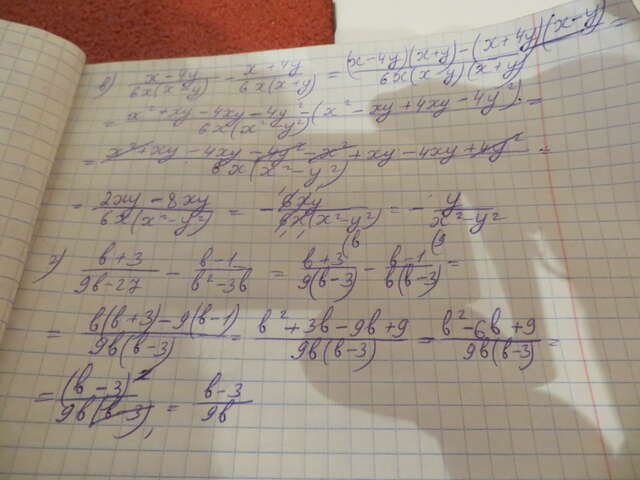 в) (x-4y)/(6x(x-y)) - (x+4y)/(6x(x+y)) = ((x-4y)(x+y)-(x+4y)(x-y))/(6x(x-y)(x+y)) =
= (x²+xy-4xy-4y²-(x²-xy+4xy-4y²))/(6x(x²-y²)) =
= (x²+xy-4xy-4y²-x²+xy-4xy+4y²)/(6x(x²-y²)) =
= (2xy-8xy)/(6x(x²-y²)) = -6xy/(6x(x²-y²)) = -y/(x²-y²)
г) (b+3)/(9b-27) - (b-1)/(b²-3b) = (b+3)/(9(b-3)) (b - (b-1)/(b(b-3)) (9 =
= (b(b+3)-9(b-1))/(9b(b-3)) = (b²+3b-9b+9)/(9b(b-3)) = (b²-6b+9)/(9b(b-3)) =
= (b-3)²/(9b(b-3)) = (b-3)/(9b)